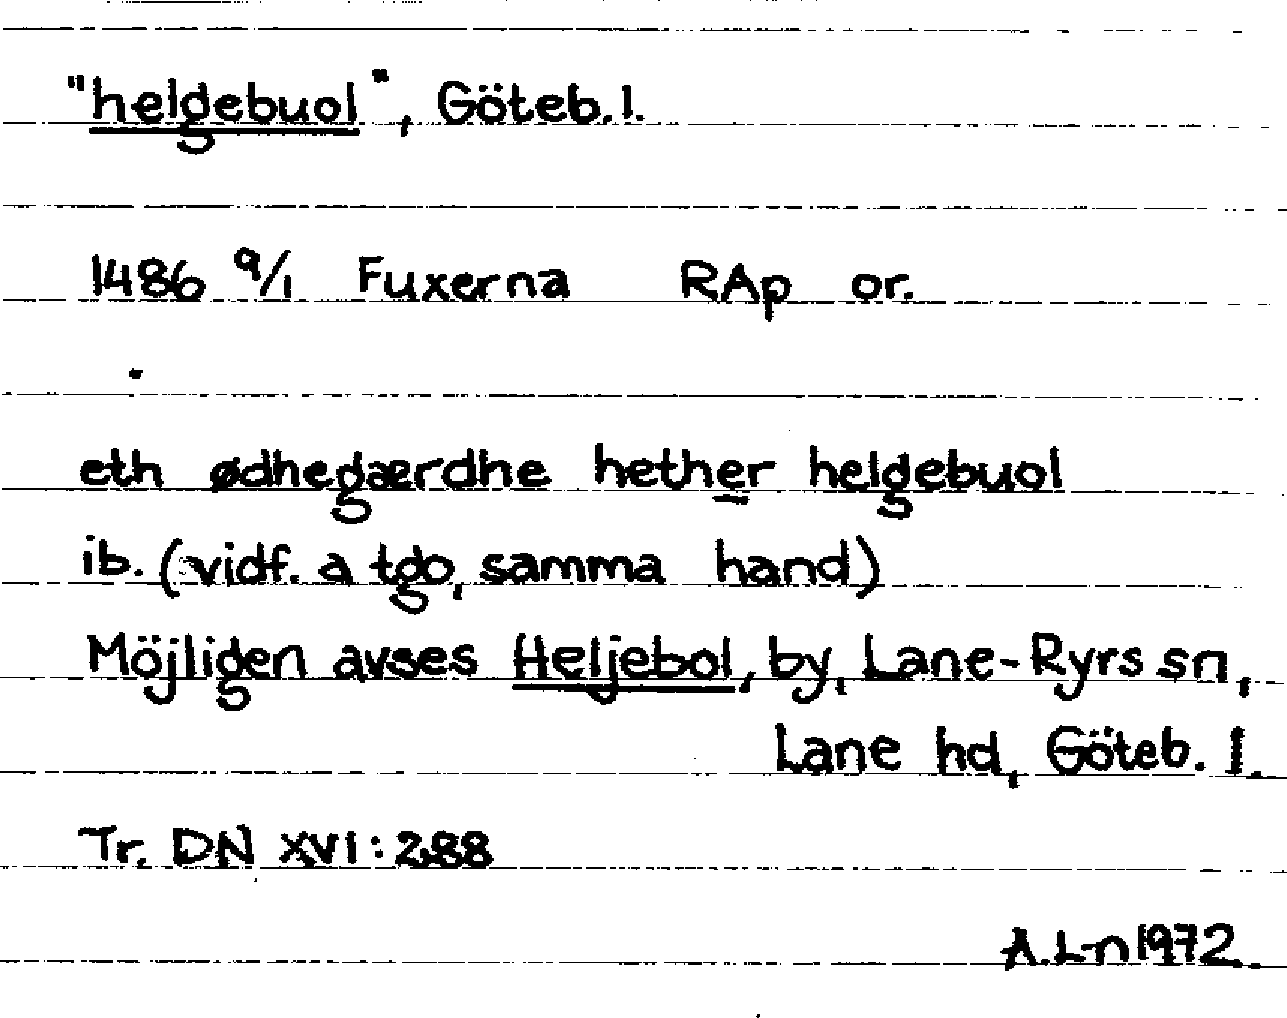 "helgebuol", Göteb. l.
1486 9/1 Fuxerna RAp or.
eth ødhegærdhe hether helgebuol
ib. (vidf. a tgo, samma hand)
Möjligen avses Heljebol, by, Lane-Ryrs sn,
Lane hd, Göteb. l.
Tr. DN XVI:288
A.L-n 1972.